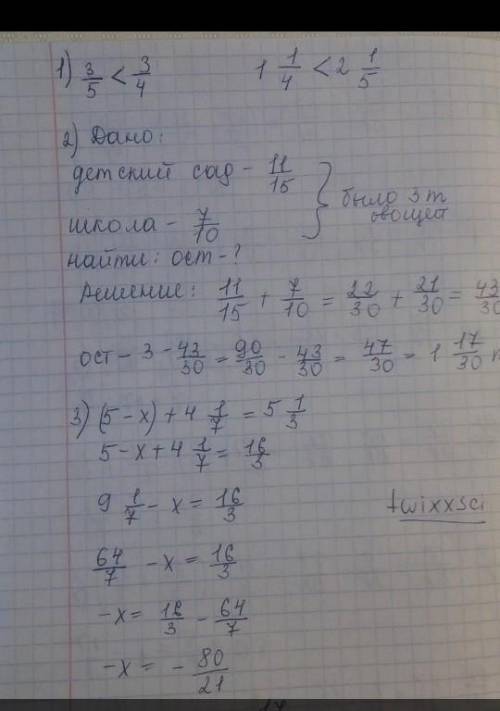 1) 3/5 < 3/4 1 1/4 < 2 1/5
2) Дано:
детский сад - 11/15
школа - 7/10 } было 3 т овощей
найти: ост - ?
Решение: 11/15 + 7/10 = 22/30 + 21/30 = 43/30
ост - 3 - 43/30 = 90/30 - 43/30 = 47/30 = 1 17/30 т
3) (5 - x) + 4 1/7 = 5 1/3
5 - x + 4 1/7 = 16/3
9 1/7 - x = 16/3
twixxsci
64/7 - x = 16/3
-x = 16/3 - 64/7
-x = - 80/21